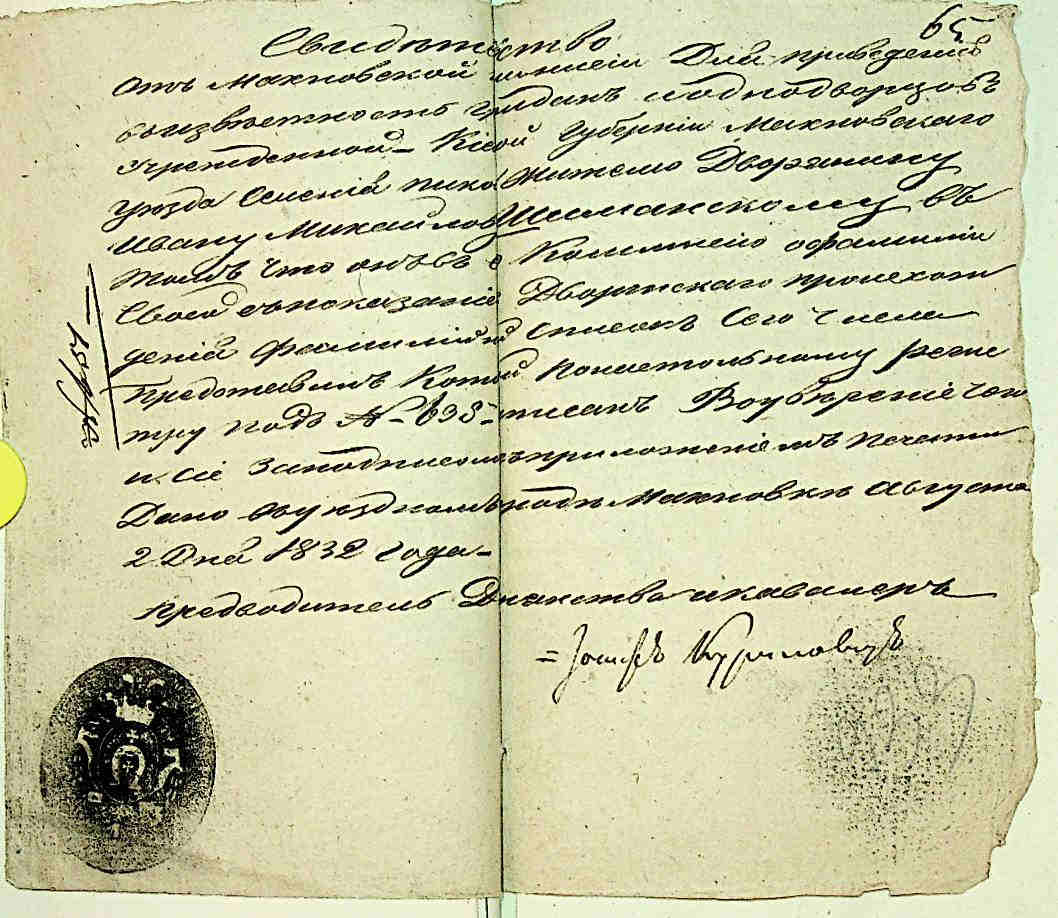 65
Свидѣтельство
отъ Махновской комисіи Для приведенія
въ извѣстность граждан и однодворцовъ
Учрежденной Кіевской Губерніи Махновскаго
уезда Селенія жителю Дворянину
Ивану Михайлову Шиманскому въ
томъ что онъ въ Комисію о фамиліи
своей съ показаніе Дворянскаго происхож
денія фамилійный списокъ Сего числа
Предоставилъ Который по настольному реги
тру подъ № 693 писанъ Воувѣреніе чего
и сіе Заподписомъ приложеніемъ печати
Дано въ уездномъ Махновкѣ Августа
2 Дня 1832 года
предводитель Дворянства и кавалеръ
Іосифъ